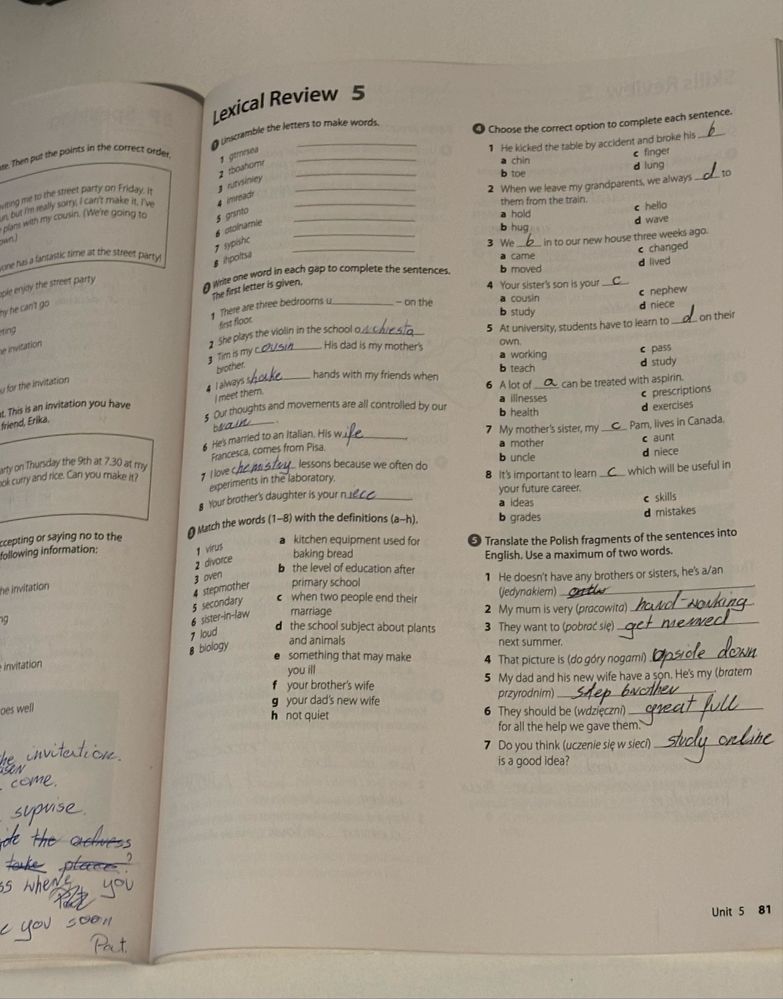 ute. Then put the points in the correct order.
viting me to the street party on Friday. It
un, but I'm really sorry, I can't make it. I've
plans with my cousin. (We're going to
own.)
yone has a fantastic time at the street party!
ople enjoy the street party
hy he can't go
eting
e invitation
u for the invitation
t. This is an invitation you have
friend, Erika.
arty on Thursday the 9th at 7.30 at my
ok curry and rice. Can you make it?
ccepting or saying no to the
following information:
he invitation
ng
invitation
oes well
he invitation.
come.
suprise.
the adress
take place?
ss where you
Pat
you soon
Pat.
Lexical Review 5
1 Unscramble the letters to make words.
3 rutvsiniey
4 imreadr
5 granto
6 otolnamie
7 sypishc
8 ihpoltsa
2 Write one word in each gap to complete the sentences.
The first letter is given.
1 There are three bedrooms u – on the
first floor.
2 She plays the violin in the school orchiesta
3 Tim is my cousin. His dad is my mother's
brother.
4 I always shake hands with my friends when
I meet them.
5 Our thoughts and movements are all controlled by our
brain.
6 He's married to an Italian. His wife,
Francesca, comes from Pisa.
7 I love chemistry lessons because we often do
experiments in the laboratory.
8 Your brother's daughter is your niece
3 Match the words (1–8) with the definitions (a–h).
1 virus
2 divorce
3 oven
4 stepmother
5 secondary
6 sister-in-law
7 loud
8 biology
a kitchen equipment used for
baking bread
b the level of education after
primary school
c when two people end their
marriage
d the school subject about plants
and animals
e something that may make
you ill
f your brother's wife
g your dad's new wife
h not quiet
4 Choose the correct option to complete each sentence.
1 He kicked the table by accident and broke his b
a chin c finger
b toe d lung
2 When we leave my grandparents, we always d to
them from the train.
a hold c hello
b hug d wave
3 We b in to our new house three weeks ago.
a came c changed
b moved d lived
4 Your sister's son is your c
a cousin c nephew
b study d niece
5 At university, students have to learn to d on their
own.
a working c pass
b teach d study
6 A lot of a can be treated with aspirin.
a illnesses c prescriptions
b health d exercises
7 My mother's sister, my c Pam, lives in Canada.
a mother c aunt
b uncle d niece
8 It's important to learn c which will be useful in
your future career.
a ideas c skills
b grades d mistakes
5 Translate the Polish fragments of the sentences into
English. Use a maximum of two words.
1 He doesn't have any brothers or sisters, he's a/an
(jedynakiem)
2 My mum is very (pracowita) hard-working
3 They want to (pobrać się) get merried
next summer.
4 That picture is (do góry nogami) upside down
5 My dad and his new wife have a son. He's my (bratem
przyrodnim) step brother
6 They should be (wdzięczni) great full
for all the help we gave them.
7 Do you think (uczenie się w sieci) study online
is a good idea?
Unit 5 81